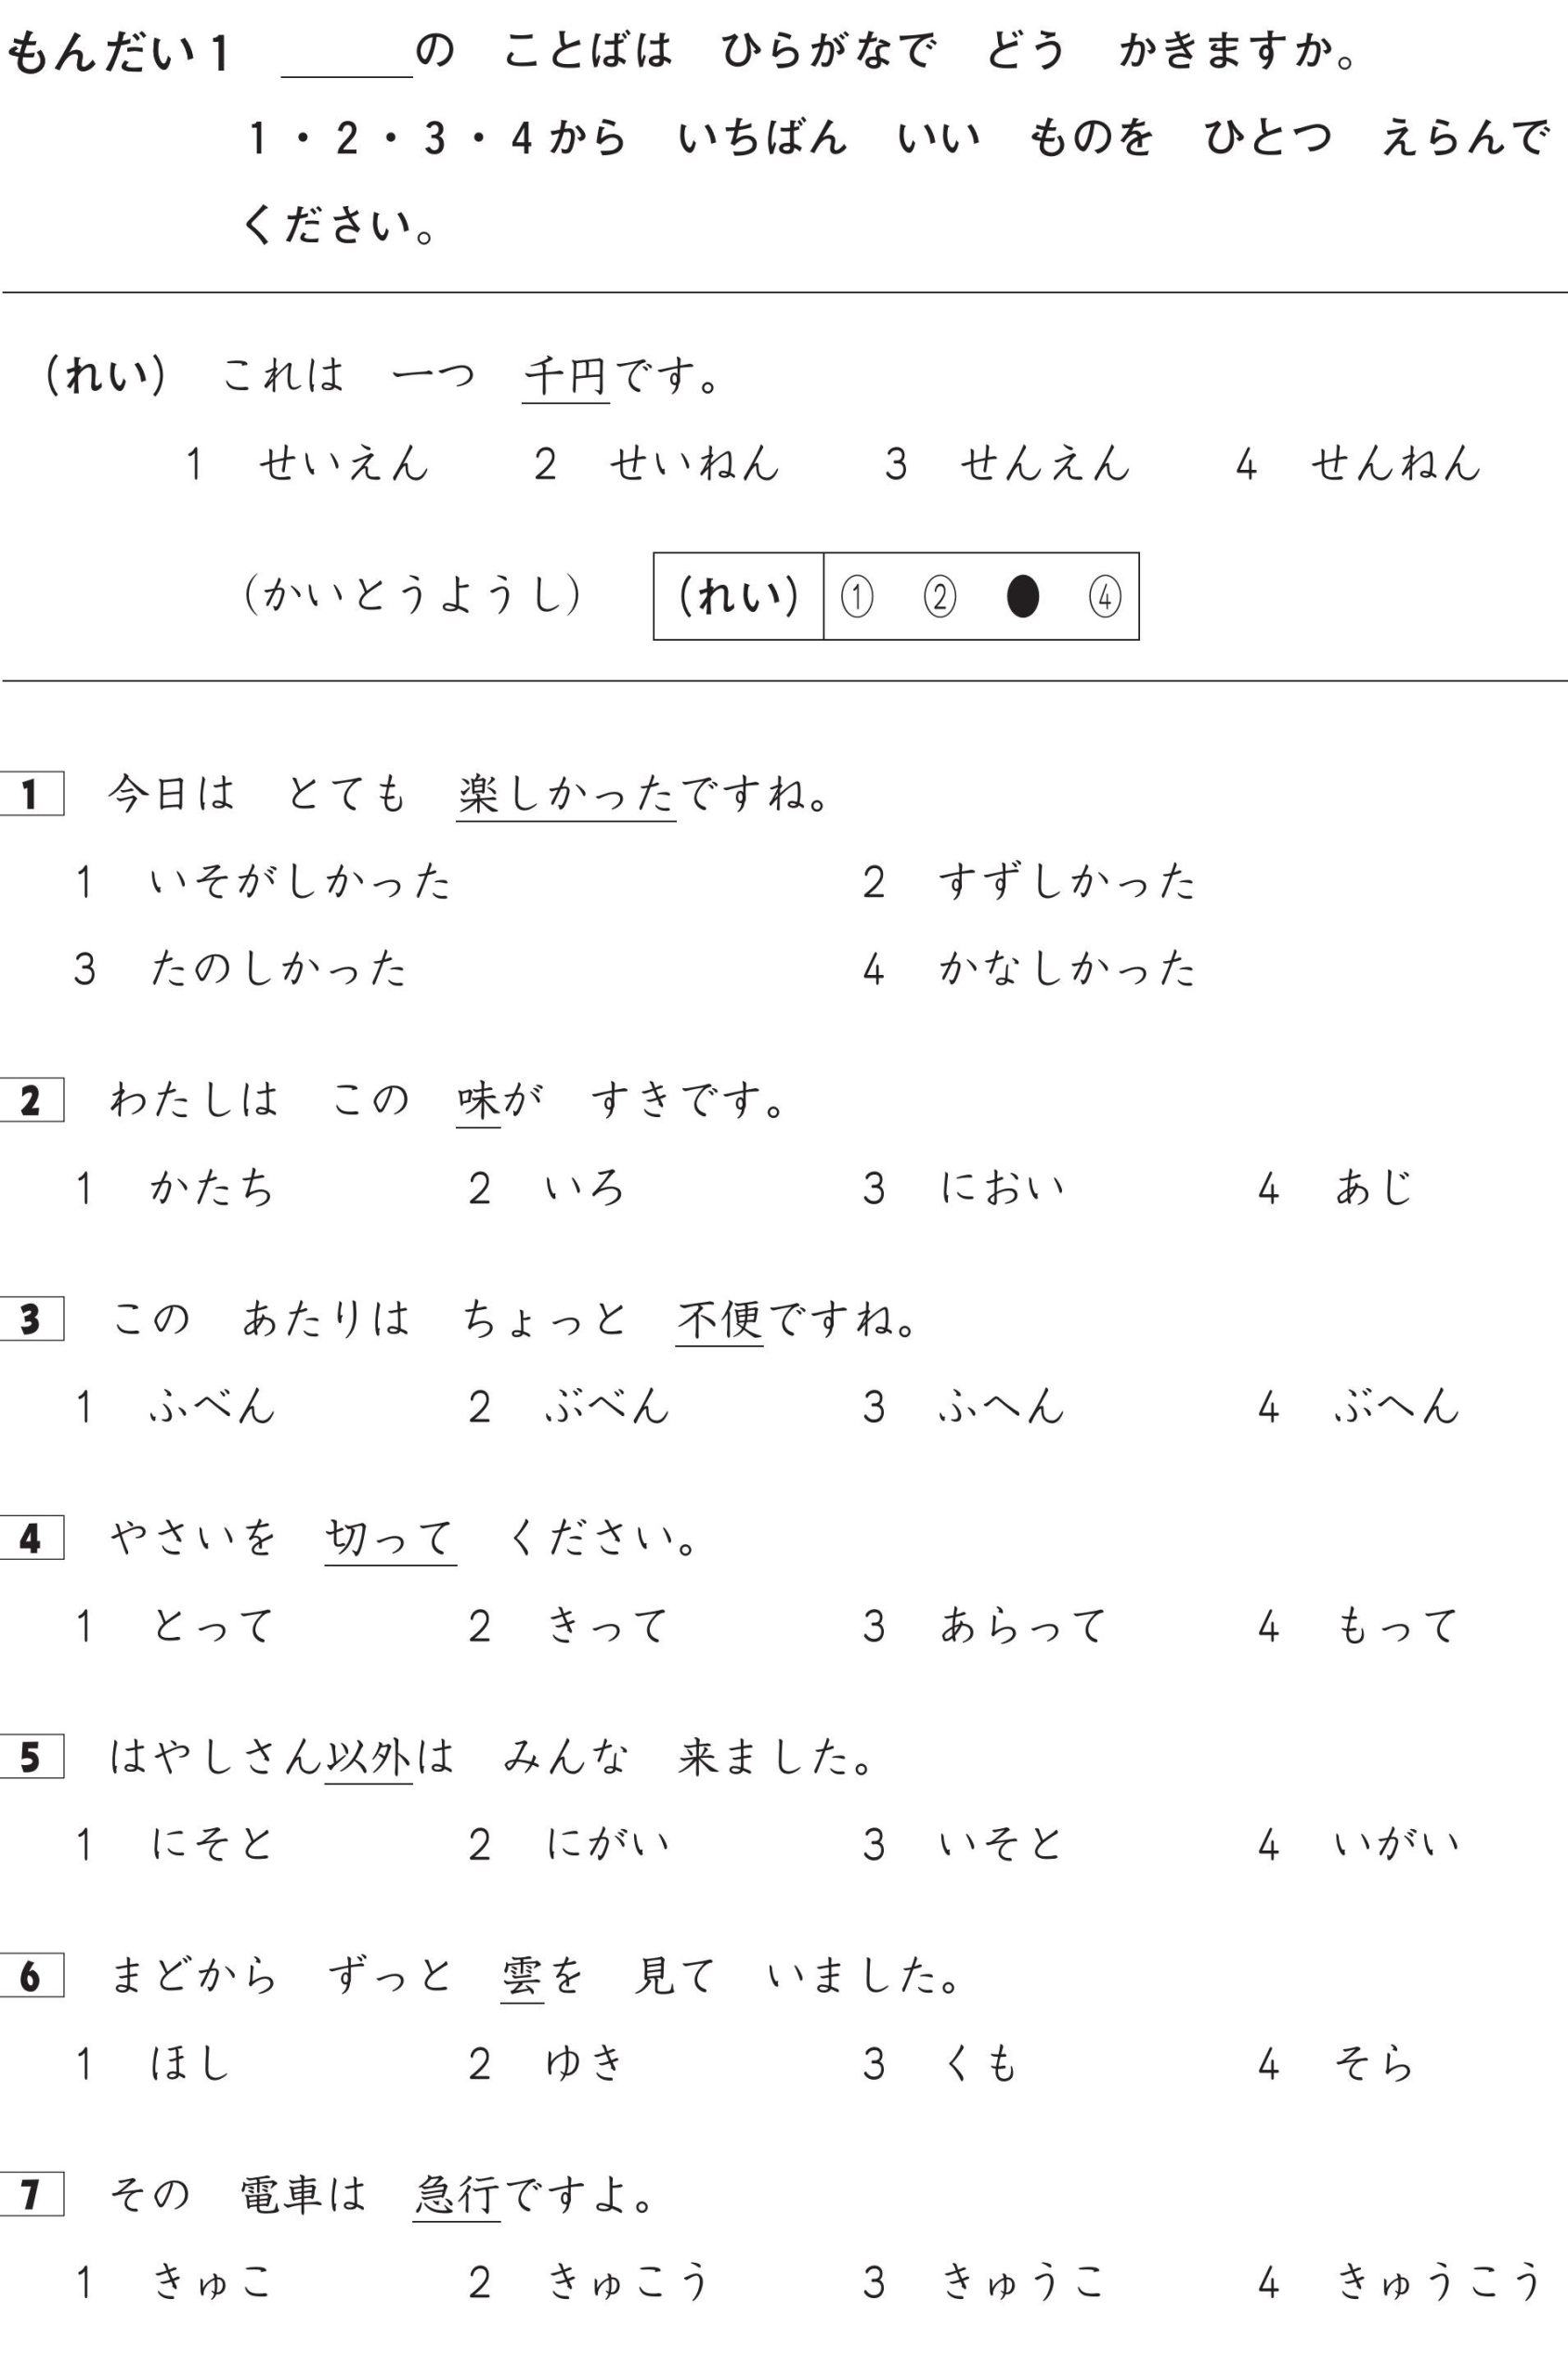 もんだい1　＿＿＿の　ことばは　ひらがなで　どう　かきますか。
1・2・3・4から　いちばん　いい　ものを　ひとつ　えらんで
ください。
（れい）　これは　一つ　千円です。
1　せいえん　2　せいねん　3　せんえん　4　せんねん
（かいとうようし）　（れい）　①　②　●　④
1　今日は　とても　楽しかったですね。
1　いそがしかった　2　すずしかった
3　たのしかった　4　かなしかった
2　わたしは　この　味が　すきです。
1　かたち　2　いろ　3　におい　4　あじ
3　この　あたりは　ちょっと　不便ですね。
1　ふべん　2　ぶべん　3　ふへん　4　ぶへん
4　やさいを　切って　ください。
1　とって　2　きって　3　あらって　4　もって
5　はやしさん以外は　みんな　来ました。
1　にそと　2　にがい　3　いそと　4　いがい
6　まどから　ずっと　雲を　見て　いました。
1　ほし　2　ゆき　3　くも　4　そら
7　その　電車は　急行ですよ。
1　きゅこ　2　きゅこう　3　きゅうこ　4　きゅうこう